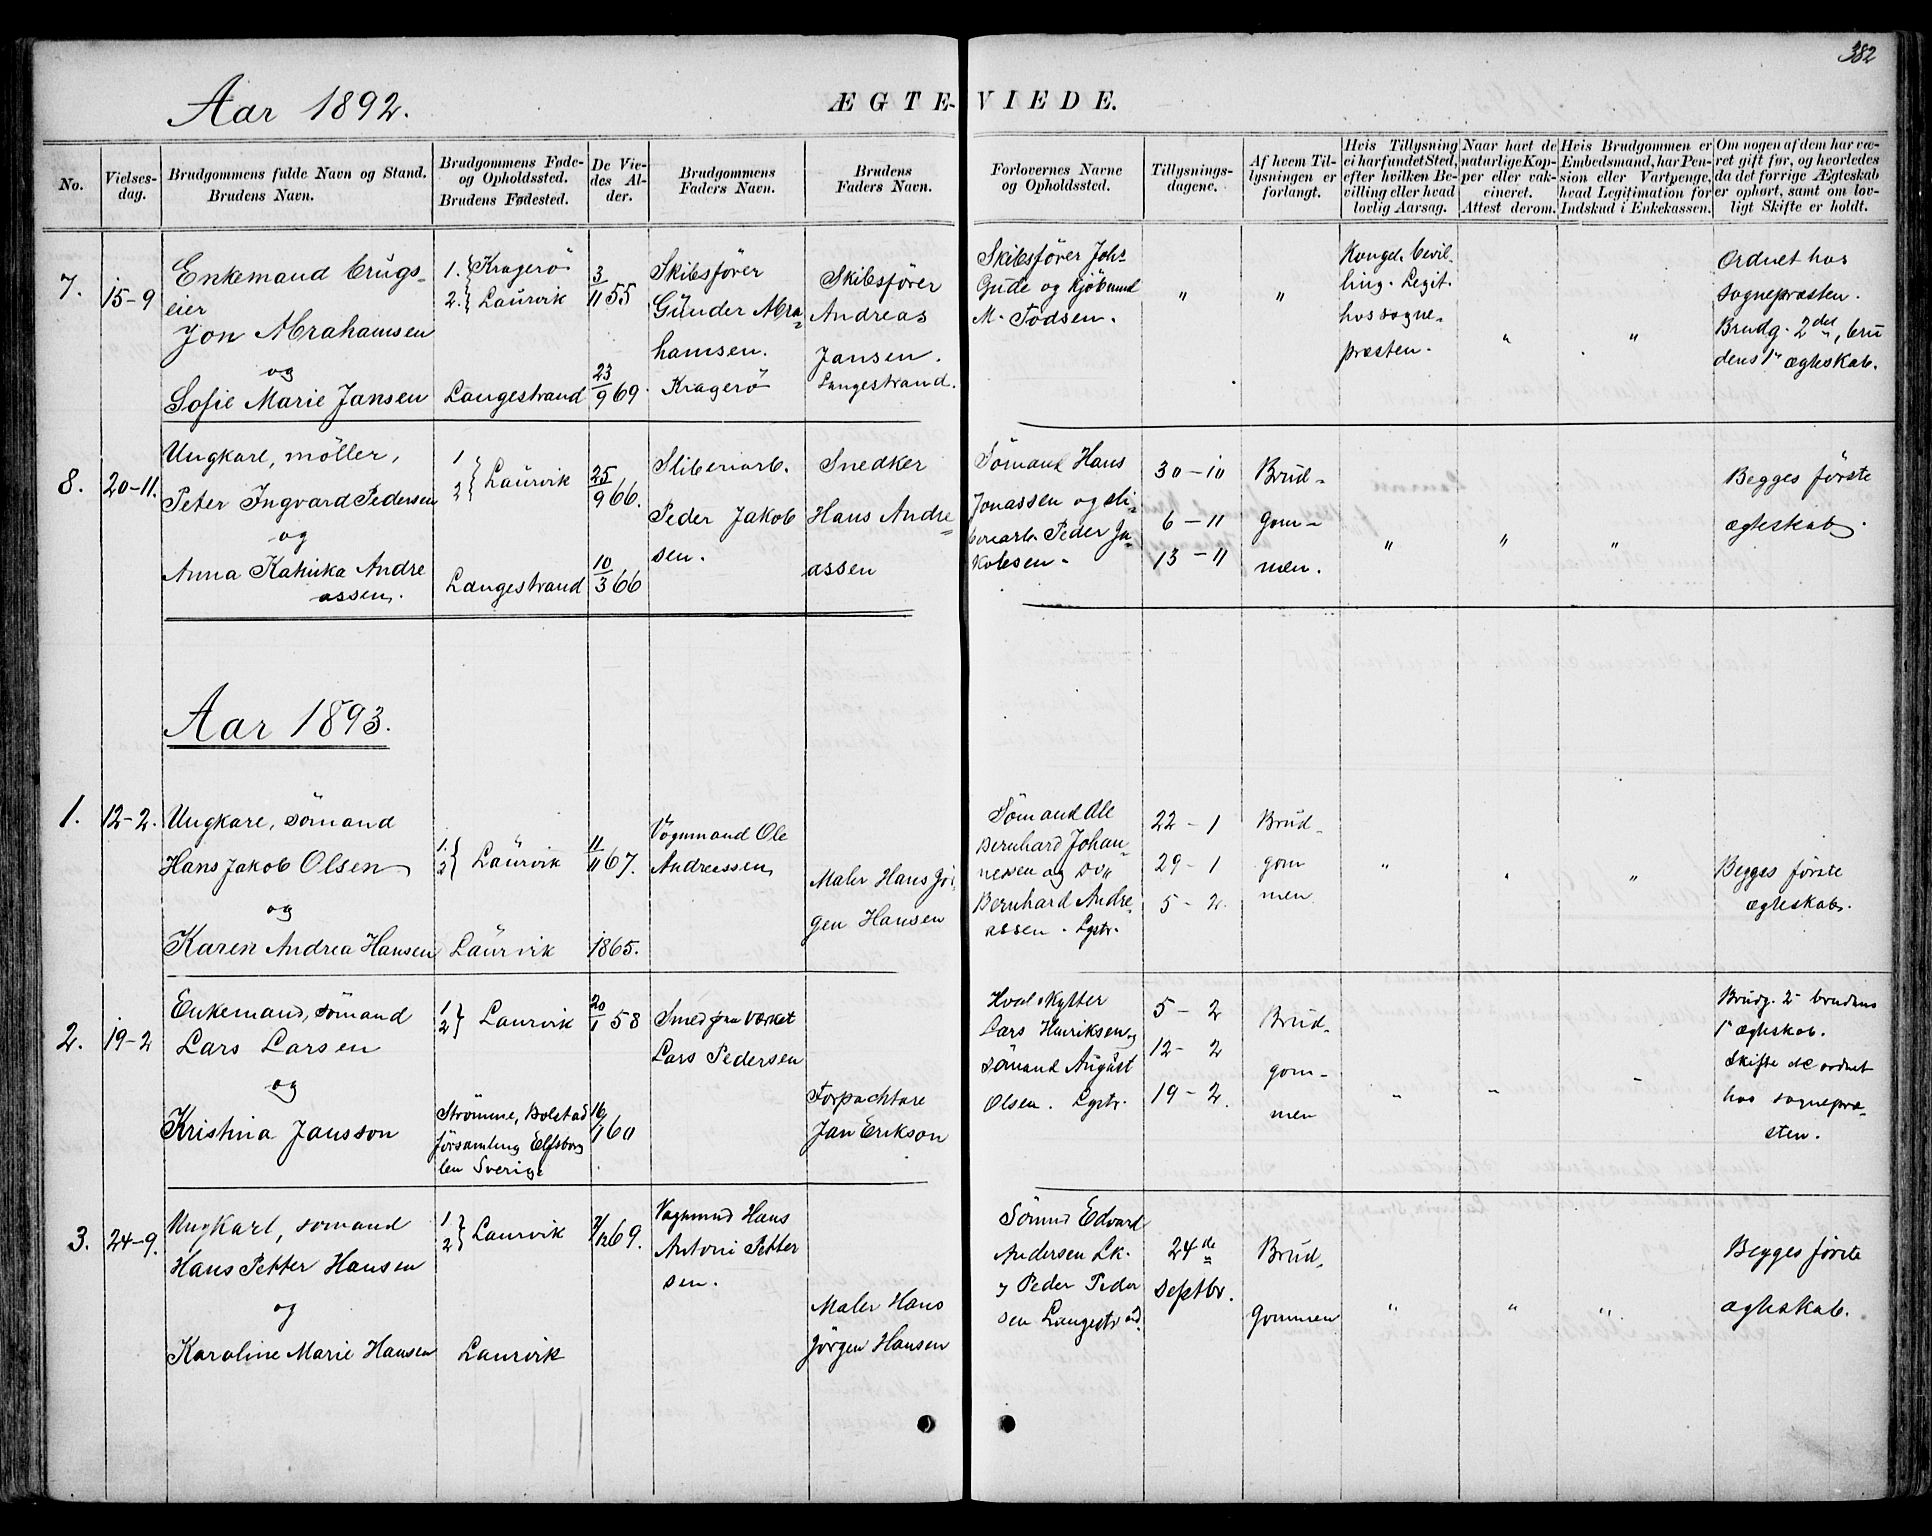 382
Aar 1892.
ÆGTE-VIEDE.
No.
Vielses-
dag.
Brudgommens fulde Navn og Stand.
Brudens Navn.
Brudgommens Føde-
og Opholdssted.
Brudens Fødested.
De Vie-
des Al-
der.
Brudgommens
Faders Navn.
Brudens
Faders Navn.
Forlovernes Navne
og Opholdssted.
Tillysnings-
dagene.
Af hvem Til-
lysningen er
forlangt.
Hvis Tillysning
ei har fundet Sted,
efter hvilken Be-
villing eller hvad
lovlig Aarsag.
Naar havt de
naturlige Kop-
per eller vak-
cineret.
Attest derom.
Hvis Brudgommen er
Embedsmand, har Pen-
sion eller Vartpenge,
hvad Legitimation for
Indskud i Enkekassen.
Om nogen af dem har væ-
ret gift før, og hvorledes
da det forrige Ægteskab
er ophørt, samt om lov-
ligt Skifte er holdt.
7.
15-9
Enkemand brugs-
eier
Jon Abrahamsen
og
Sofie Marie Jansen
1. { Kragerö
2. { Laurvik
Langestrand
3/11 55
23/9 69.
Skibsförer
Gunder Abra=
hamsen.
Kragerö
Skibsförer
Andreas
Jansen.
Langestrand.
Skibsförer Johs
Gude og Kjöbmd
M. Todsen.
"
"
Kongel. bevil-
ling. Legit.
hos sogne-
præsten.
"
"
Ordnet hos
sognepræsten.
Brudg. 2det, bru
dens 1" ægteskab.
8.
20-11.
Ungkarl, möller,
Peter Ingvard Pedersen
og
Anna Katinka Andre
assen.
1
2 { Laurvik
Langestrand
25/9 66.
10/3 66
Sliberiarb.
Peder Jakob
sen.
Snedker
Hans Andre=
assen
Sömand Hans
Jonassen og sli-
beriarb. Peder Ja=
kobsen.
30-10
6-11
13-11
Brud-
gom-
men.
"
"
"
Begges förste
ægteskab.
Aar 1893.
1.
12-2.
Ungkarl, sömand
Hans Jakob Olsen
og
Karen Andrea Hansen
1.
2 } Laurvik
Laurvik
11/11 67.
1865.
Vognmand Ole
Andreassen
Maler Hans Jör
gen Hansen
Sömand Ole
Bernhard Johan-
nessen og do"
Bernhard Andre-
assen. Lgstr.
22-1
29-1
5-2.
Brud-
gom
men
"
"
"
Begges förste
ægteskab.
2.
19-2
Enkemand, sömand
Lars Larsen
og
Kristina Jansson
1
2 } Laurvik
Strömme, Bolstad
församling Elfsborg
len Sverige
20/1 58
16/1 60
Smed fra Værket
Lars Pedersen
Forpachtare
Jan Erikson
Hvalskytter
Lars Henriksen og
sömand August
Olsen. Lgstr.
5-2
12-2
19-2.
Brud-
gom-
men
"
"
"
Brudg. 2- brudens
1" ægteskab.
Skifte &c ordnet
hos sognepræ-
sten.
3.
24-9.
Ungkarl, sömand
Hans Petter Hansen
og
Karoline Marie Hansen
1
2 } Laurvik
Laurvik
69.
Vognmnd Hans
Antoni Petter
sen.
Maler Hans
Jörgen Hansen
Sömnd Edvard
Andersen Lk.
Peder Peder
sen Langestrand.
24de
septbr.
Brud-
gommen
"
"
"
Begges förste
ægteskab.